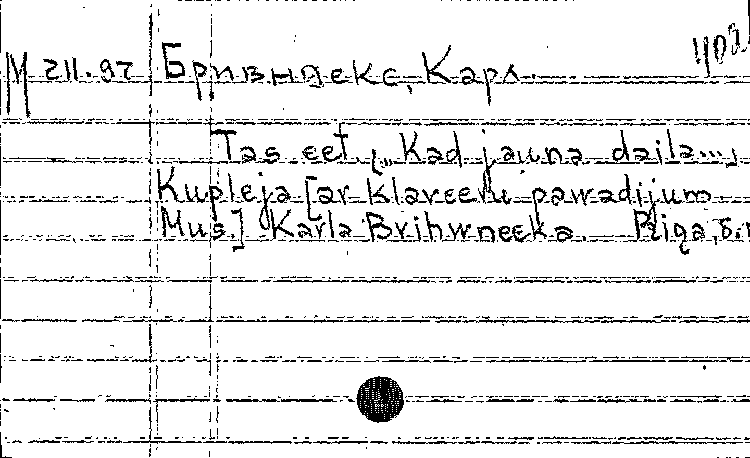 М 211.97 Бривндекс, Карл. 402
Tas eet. („Kad jauna daila...„
Kupleja [ar klaveeru pawadijum.
Mus.] Karla Brihwneeka. Riga, б.г